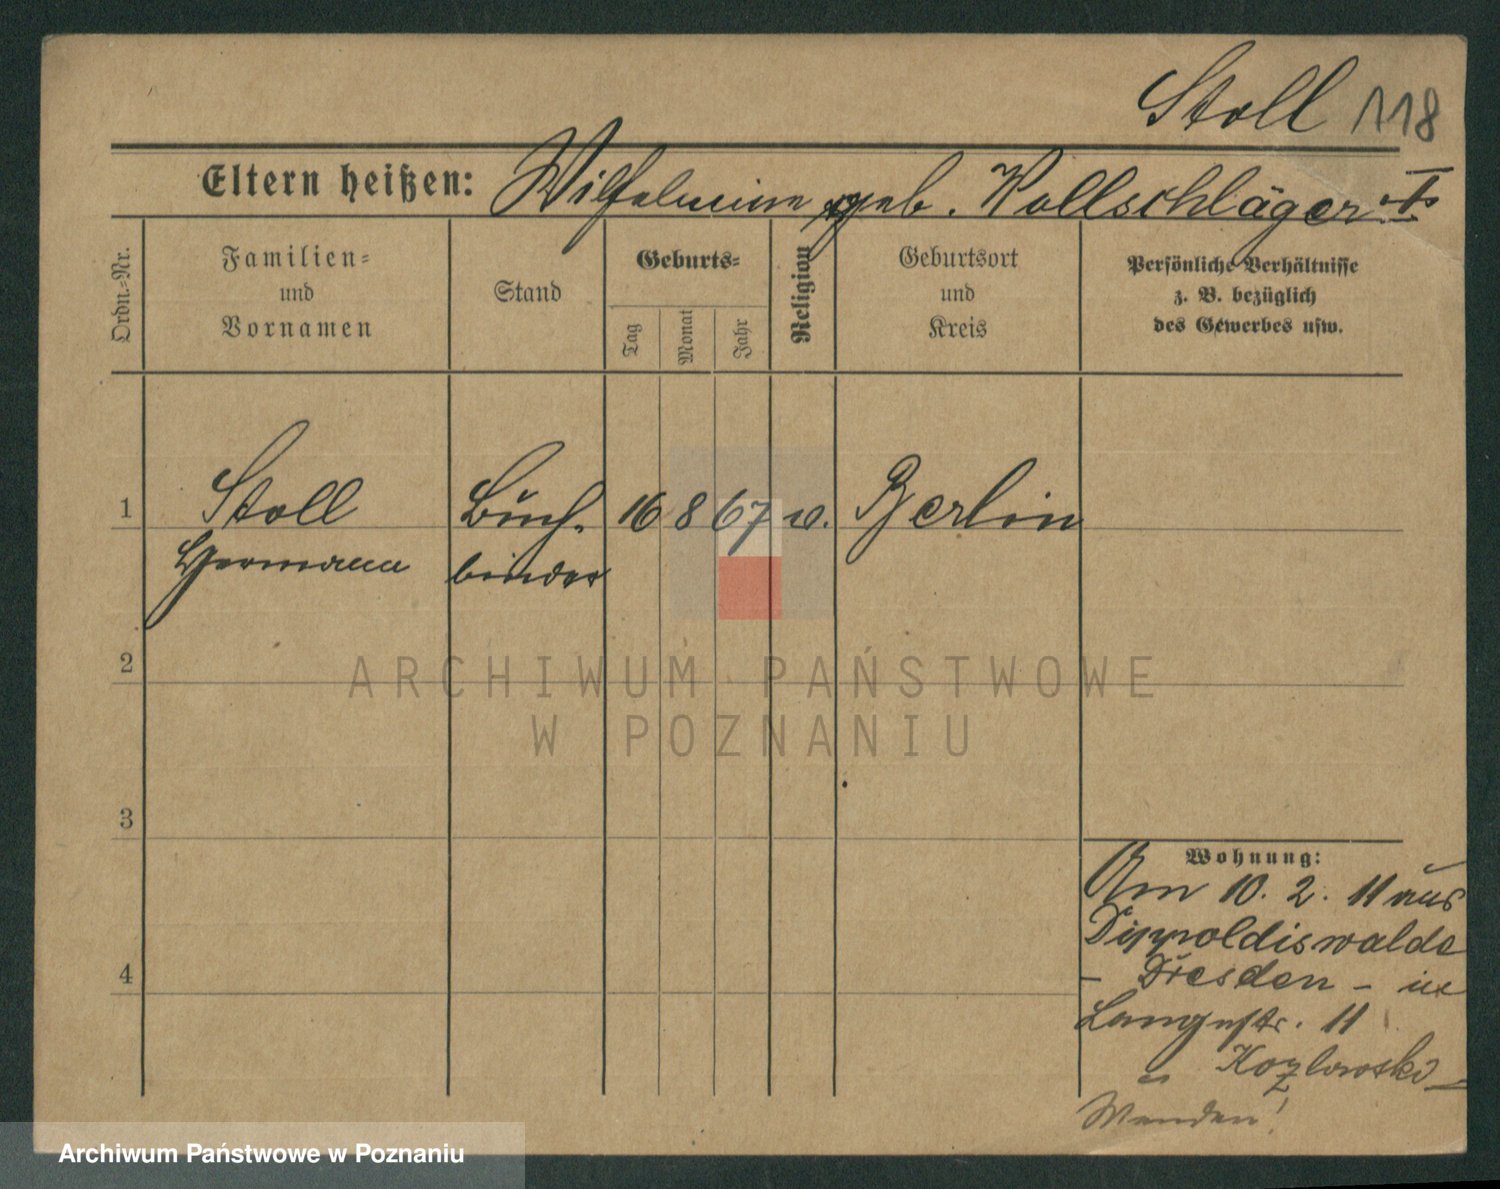 Stoll 118
Eltern heißen: Wilhelmine geb. Wollschläger
Ordn.-Nr.
Familien-
und
Vornamen
Stand
Geburts-
Tag
Monat
Jahr
Religion
Geburtsort
und
Kreis
Persönliche Verhältnisse
z. B. bezüglich
des Gewerbes usw.
1 Stoll Buch- 16 8 67 Berlin
Hermann binder
2
3
4
Wohnung:
Am 10. 2. 11 aus
Dippoldiswalde
- Dresden - in
Langestr. 11
Kozlowski
Wenden!
ARCHIWUM PAŃSTWOWE
W POZNANIU
Archiwum Państwowe w Poznaniu